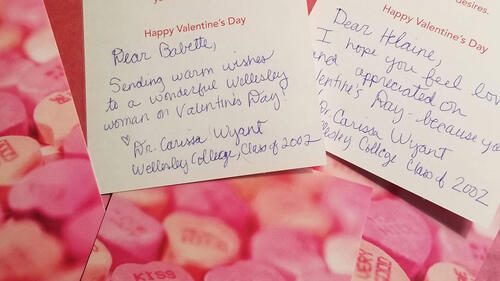 Happy Valentine's Day
Dear Babette,
Sending warm wishes
to a wonderful Wellesley
woman on Valentine's Day!
♡ Dr. Carissa Wyant
Wellesley College, Class of 2002
desires.
Happy Valentine's Day
Dear Helaine,
I hope you feel
and appreciated on
Day - because
Dr. Carissa Wyant
College Class of 2002
KISS
VERY
GOOD